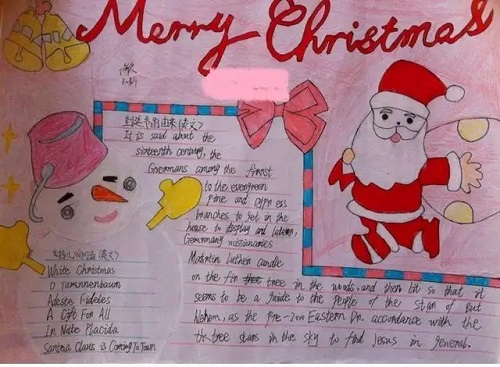 Merry Christmas
圣诞节的由来(英文)
It is said about the
sixteenth century, the
Germans among the forest
to the evergreen
pine and cypress
branches to pot in the
house to display and latern,
Germany missionaries
Martin Luther candle
on the fir tree in the woods, and then lit so that it
seems to be a guide to the people of the star of But
as the Eastern Dr. accordance with the
tree stars in the sky to find Jesus in general.
(英文)
White Christmas
O Tannnenbaum
Adeste Fideles
A Gift For All
In Note Placida
Santna Claus is Coming To Town